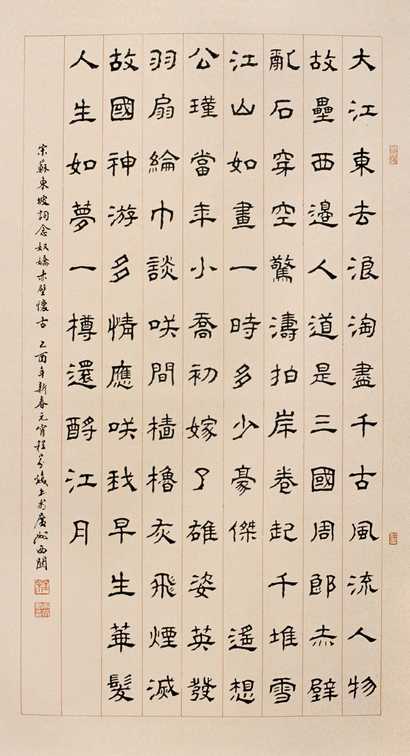 大江東去浪淘盡千古風流人物
故壘西邊人道是三國周郎赤壁
亂石穿空驚濤拍岸卷起千堆雪
江山如畫一時多少豪傑 遙想
公瑾當年小喬初嫁了雄姿英發
羽扇綸巾談咲間檣櫓灰飛煙滅
故國神游多情應咲我早生華髮
人生如夢一樽還酹江月
宋蘇東坡詞念奴嬌赤壁懷古 乙酉年新春元宵程 書廣州西關